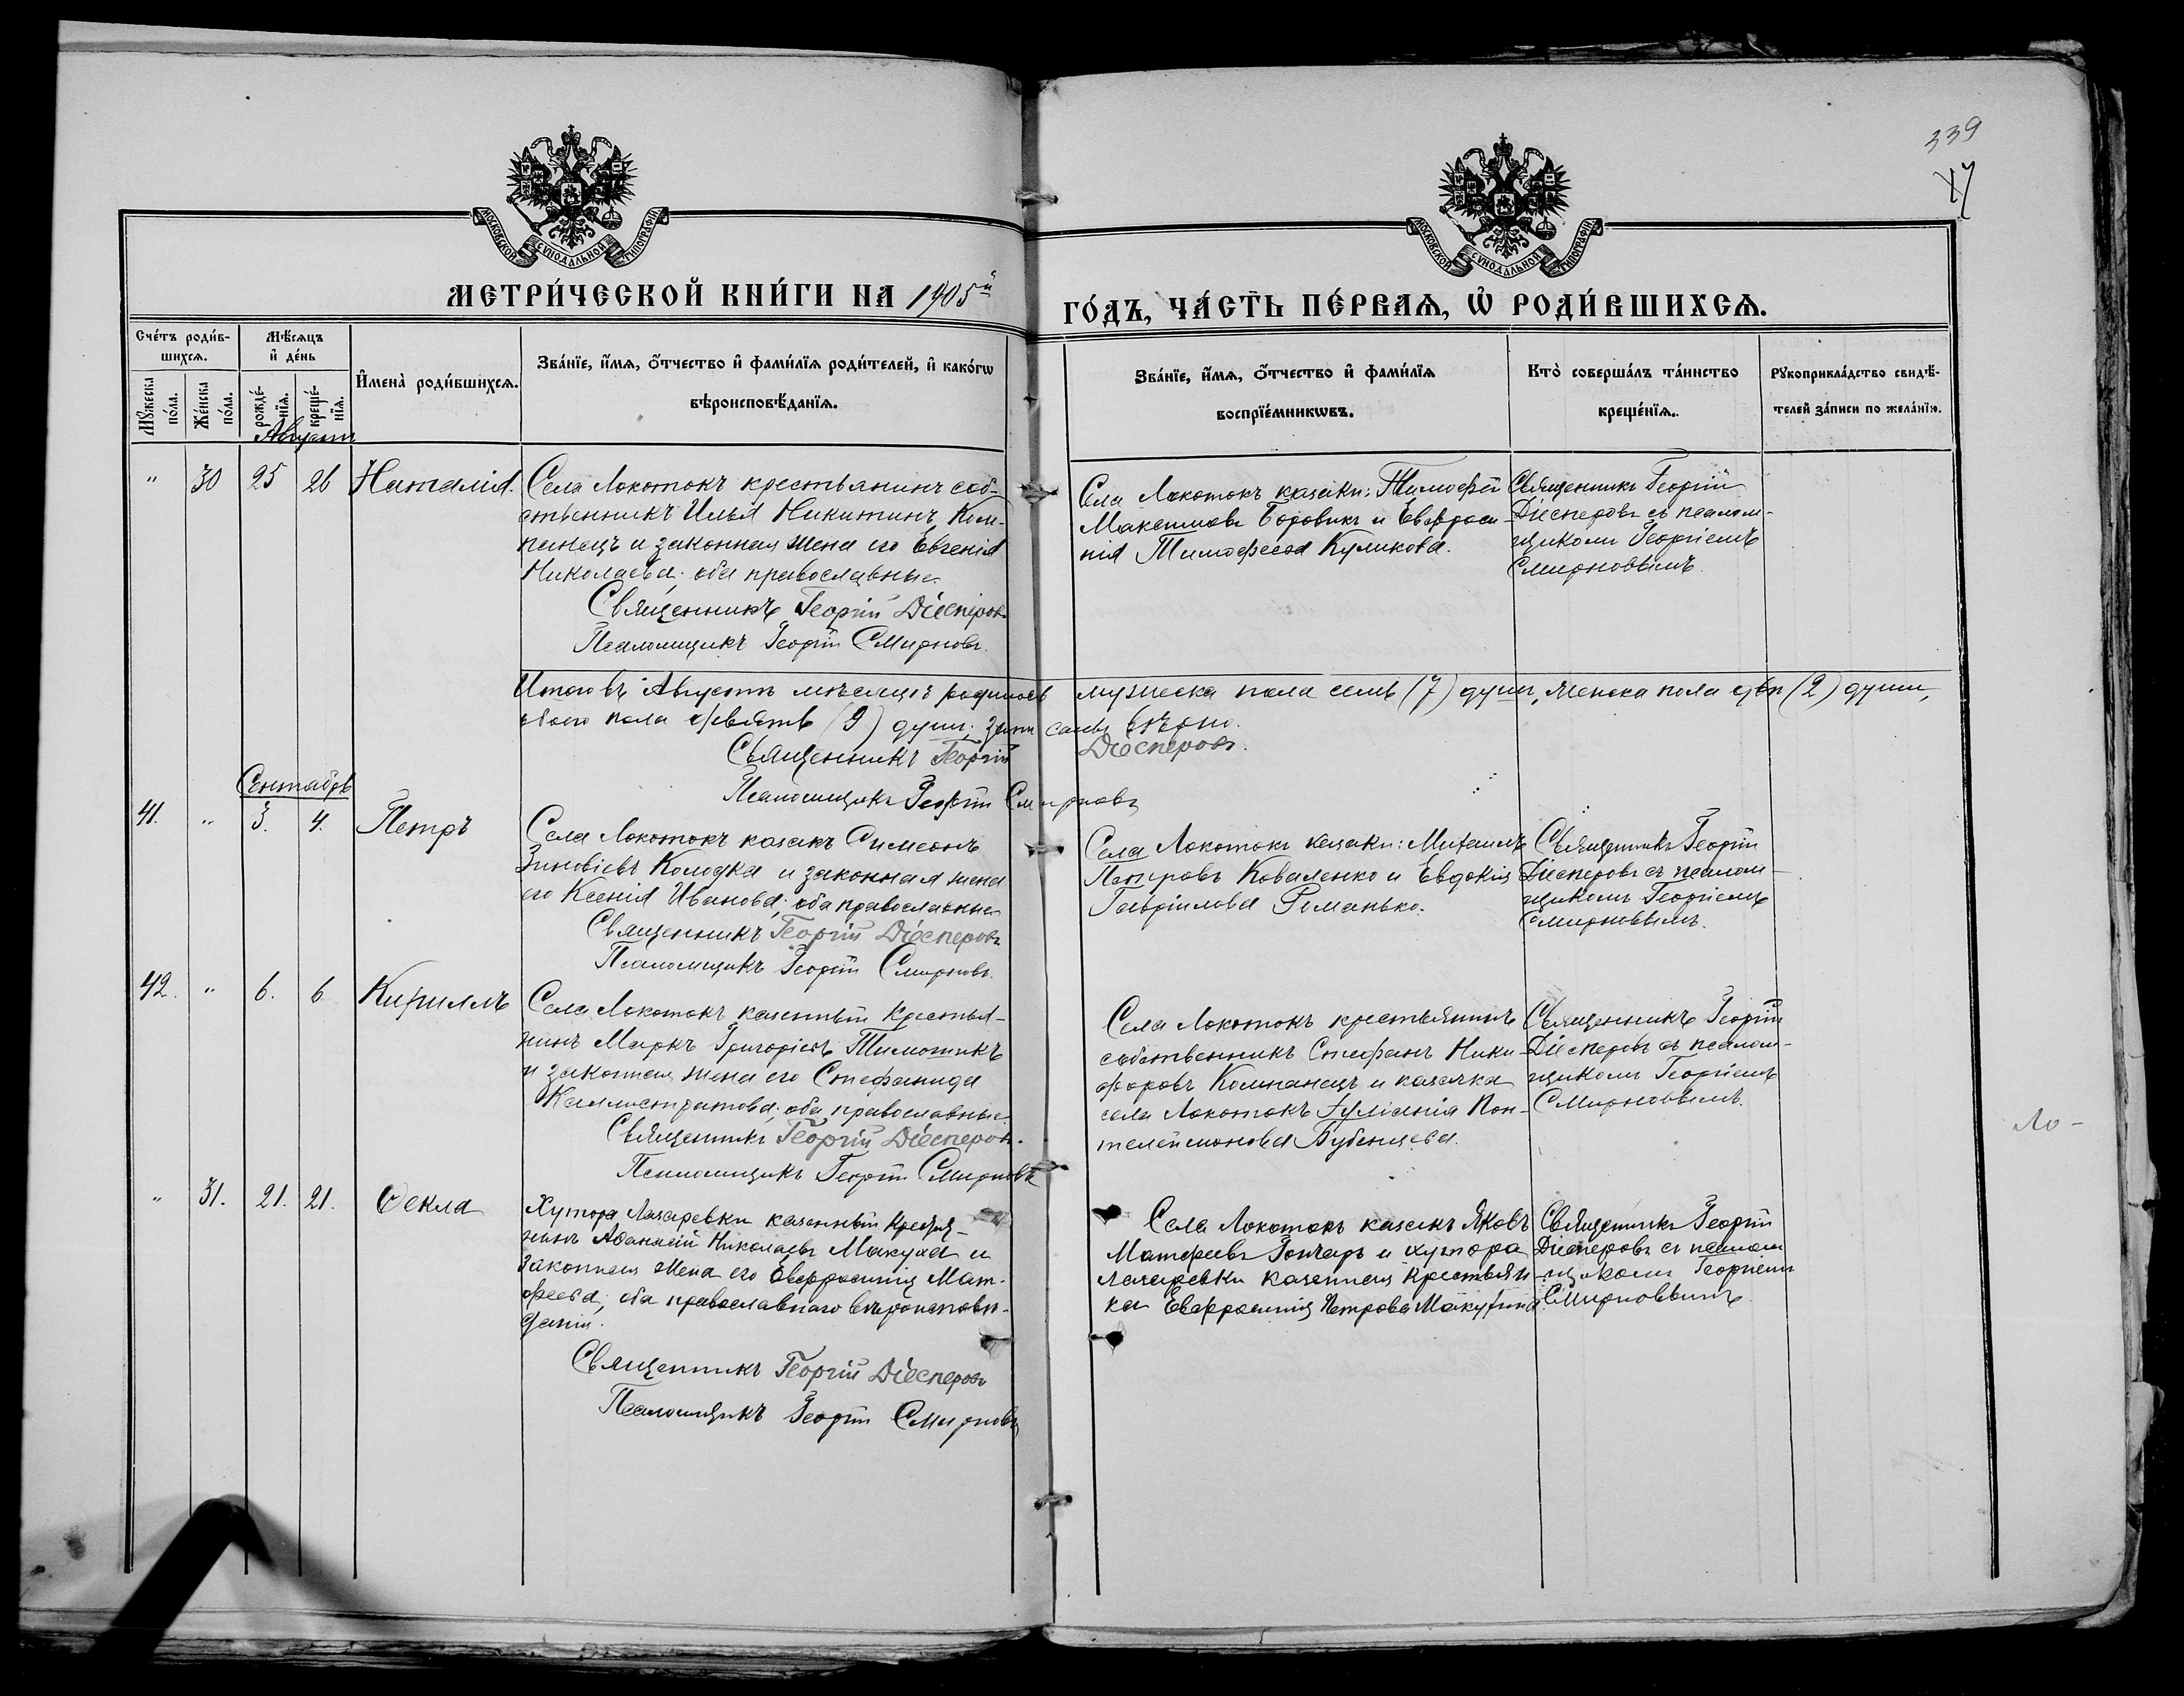 339
МОСКОВСКОЙ СѴНОДАЛЬНОЙ ТИПОГРАФІИ
МОСКОВСКОЙ СѴНОДАЛЬНОЙ ТИПОГРАФІИ
МЕТРИ́ЧЕСКОЙ КНИ́ГИ НА 1905й
ГО́ДЪ, ЧА́СТЬ ПЕ́РВАѦ, Ѡ РОДИ́ВШИХСѦ.
Сче́тъ роди́в-
шихсѧ.
Мꙋжеска по́ла.
Же́нска по́ла.
Мѣ́сѧцъ
и҆ де́нь
рожде́-
нїѧ.
креще́-
нїѧ.
И҆мена̀ роди́вшихсѧ.
Зва́нїе, и҆́мѧ, ѻ҆́тчество и҆ фами́лїѧ роди́телей, и҆ како́гѡ
вѣроисповѣ́данїѧ.
Зва́нїе, и҆́мѧ, ѻ҆́тчество и҆ фами́лїѧ
воспрїе́мникѡвъ.
Кто̀ соверша́лъ та́инство
креще́нїѧ.
Рꙋкоприкла́дство свидѣ́-
телей за́писи по жела́нїю.
Августъ
" 30 25 26 Наталія.
Села Локотокъ крестьянинъ соб-
ственникъ Илья Никитинъ Ком-
панецъ и законная жена его Евгенія
Николаева; оба православные
Священникъ Георгій Діесперовъ
Псаломщикъ Георгій Смирновъ.
Села Локотокъ казаки: Тимофей
Максимовъ Боровикъ и Евфроси-
нія Тимофеева Куликова.
Священникъ Георгій
Діесперовъ съ псалом-
щикомъ Георгіемъ
Смирновымъ.
Итого въ Августѣ мѣсяцѣ родилось мужеска пола семь (7) душъ, женска пола двѣ (2) души,
обоего пола девять (9) душъ;
вѣрно.
Священникъ Георгій Діесперовъ.
Псаломщикъ Георгій Смирновъ
Сентябрь
41. " 3. 4. Петръ
Села Локотокъ казакъ Симеонъ
Зиновіевъ Колодка и законная жена
его Ксенія Иванова; оба православные
Священникъ Георгій Діесперовъ
Псаломщикъ Георгій Смирновъ.
Села Локотокъ казаки: Михаилъ
Петровъ Коваленко и Евдокія
Гавріилова Романько.
Священникъ Георгій
Діесперовъ съ псалом-
щикомъ Георгіемъ
Смирновымъ.
42. " 6. 6 Кириллъ
Села Локотокъ казенный крестья-
нинъ Маркъ Григоріевъ Тимошикъ
и законная жена его Стефанида
Каллистратова; оба православные.
Священникъ Георгій Діесперовъ.
Псаломщикъ Георгій Смирновъ
Села Локотокъ крестьянинъ
собственникъ Стефанъ Ники-
форовъ Компанецъ и казачка
села Локотокъ Іуліанія Пан-
телеймонова Бубенцева.
Священникъ Георгій
Діесперовъ съ псалом-
щикомъ Георгіемъ
Смирновымъ.
Ло-
" 31. 21. 21. Ѳекла
Хутора Лазаревки казенный крестья-
нинъ Аѳанасій Николаевъ Макуха и
законная жена его Евфросинія Мат-
феева; оба православнаго вѣроисповѣ-
данія.
Священникъ Георгій Діесперовъ
Псаломщикъ Георгій Смирновъ
Села Локотокъ казакъ Яковъ
Матфеевъ Гончаръ и хутора
Лазаревки казенная крестьян-
ка Евфросинія Петрова Макухина.
Священникъ Георгій
Діесперовъ съ псалом-
щикомъ Георгіемъ
Смирновымъ